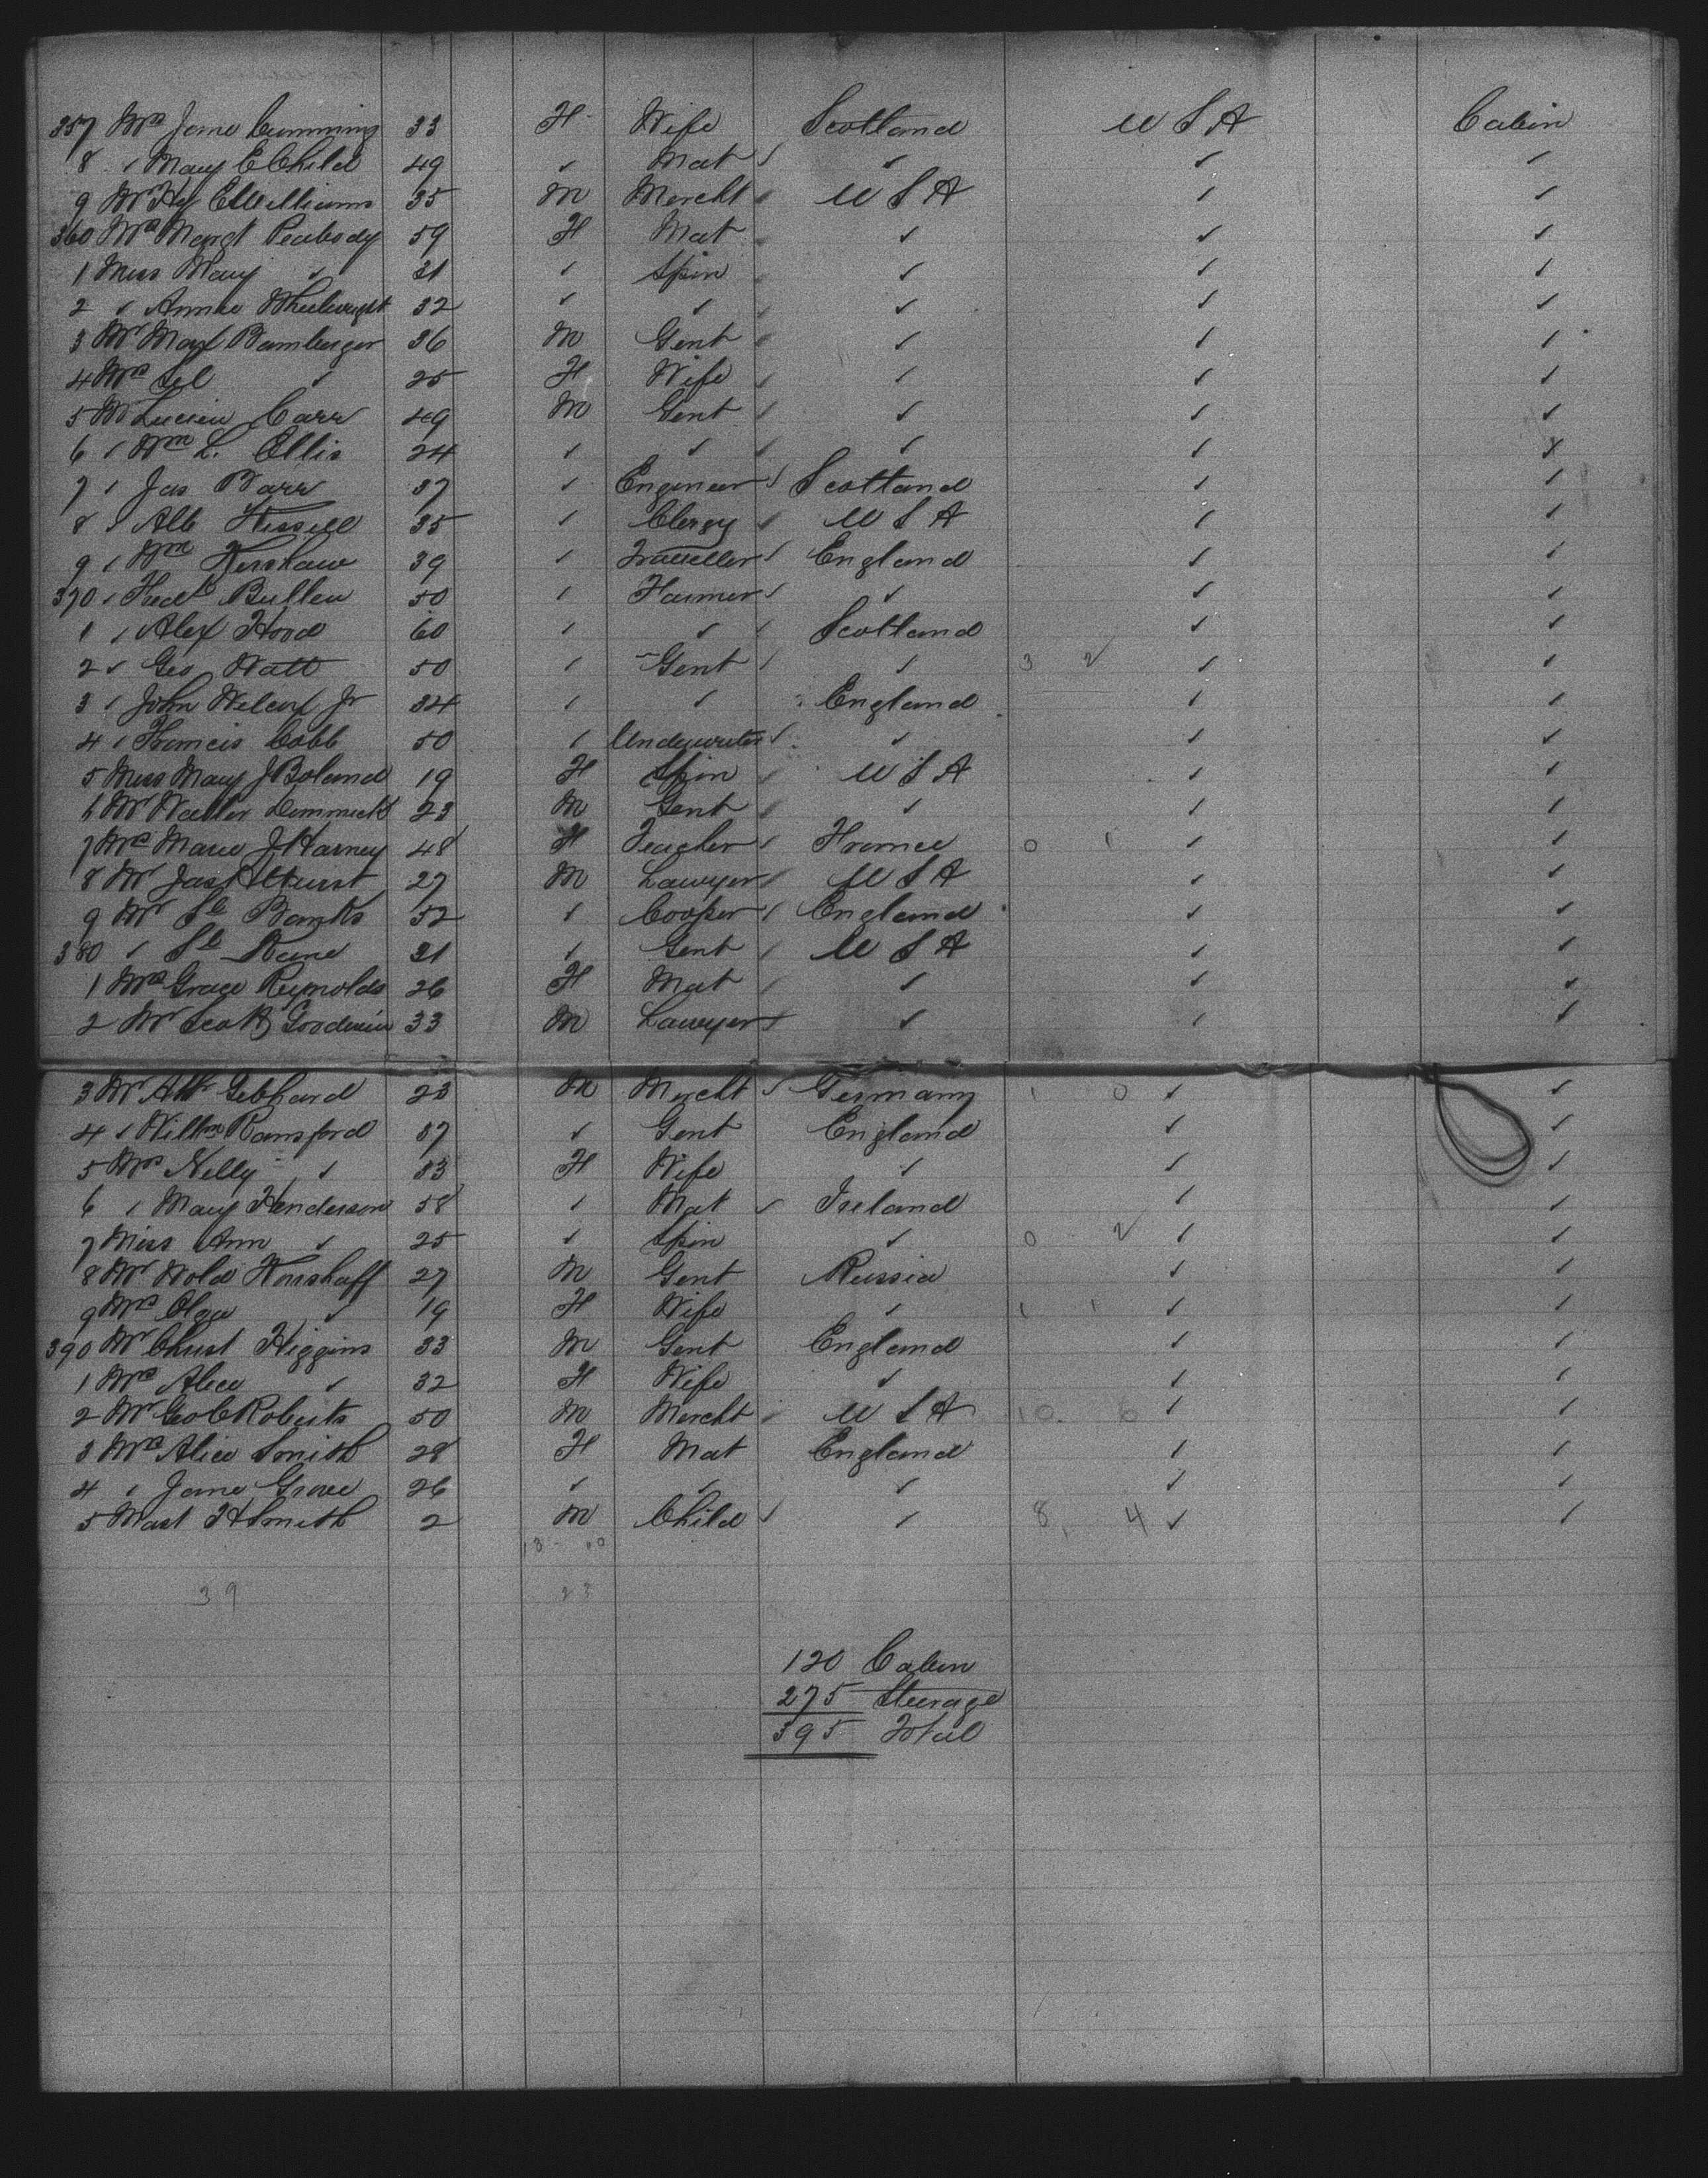 357 Mrs Jane Cumming 33 F Wife Scotland U S A Cabin
8 " Mary E Child 49 " Mat " " "
9 Mr Hy E Williams 35 M Mercht U S A " "
360 Mrs Margt Peabody 59 F Mat " " "
1 Miss Mary " 31 " Spin " " "
2 " Annie Wheelwright 32 " " " " "
3 Mr Max Bamberger 36 M Gent " " "
4 Mrs " 25 F Wife " " "
5 Mr Lucien Carr 49 M Gent " " "
6 " Wm L. Ellis 24 " " " " "
7 " Jas Barr 37 " Engineer Scotland " "
8 " Alb 35 " Clergy U S A " "
9 " Wm Kershaw 39 " Traveller England " "
370 " Fredk Bullen 50 " Farmer " " "
1 " Alex Hood 60 " " Scotland " "
2 " Geo Watt 50 " Gent " 3 2 " "
3 " John Wilcox Jr 34 " " England " "
4 " Francis Cobb 50 " Underwriter " " "
5 Miss Mary J Boland 19 F Spin U S A " "
6 Mr Walter Dimmick 23 M Gent " " "
7 Mrs Marie J Harney 48 F Teacher France 0 1 " "
8 Mr Jas Hurst 27 M Lawyer U S A " "
9 Mr Banks 52 " Cooper England " "
380 " Kane 31 " Gent U S A " "
1 Mrs Grace Reynolds 26 F Mat " " "
2 Mr Goodwin 33 M Lawyer " " "
3 Mr Gebhard 23 M Mercht Germany 1 0 " "
4 " Willm Ransford 37 " Gent England " "
5 Mrs Nelly " 33 F Wife " " "
6 " Mary Henderson 58 " Mat Ireland " "
7 Miss Ann " 25 " Spin " 0 2 " "
8 Mr Wold 27 M Gent Russia " "
9 Mrs Olga " 19 F Wife " 1 1 " "
390 Mr Christ Higgins 33 M Gent England " "
1 Mrs Alice " 32 F Wife " " "
2 Mr Geo C Roberts 50 M Mercht U S A 10 6 " "
3 Mrs Alice Smith 28 F Mat England " "
4 " Jane Grove 26 " " " " "
5 Mast H Smith 2 M Child " 8, 4 " "
13 - 10
39 23
120 Cabin
275 Steerage
395 Total